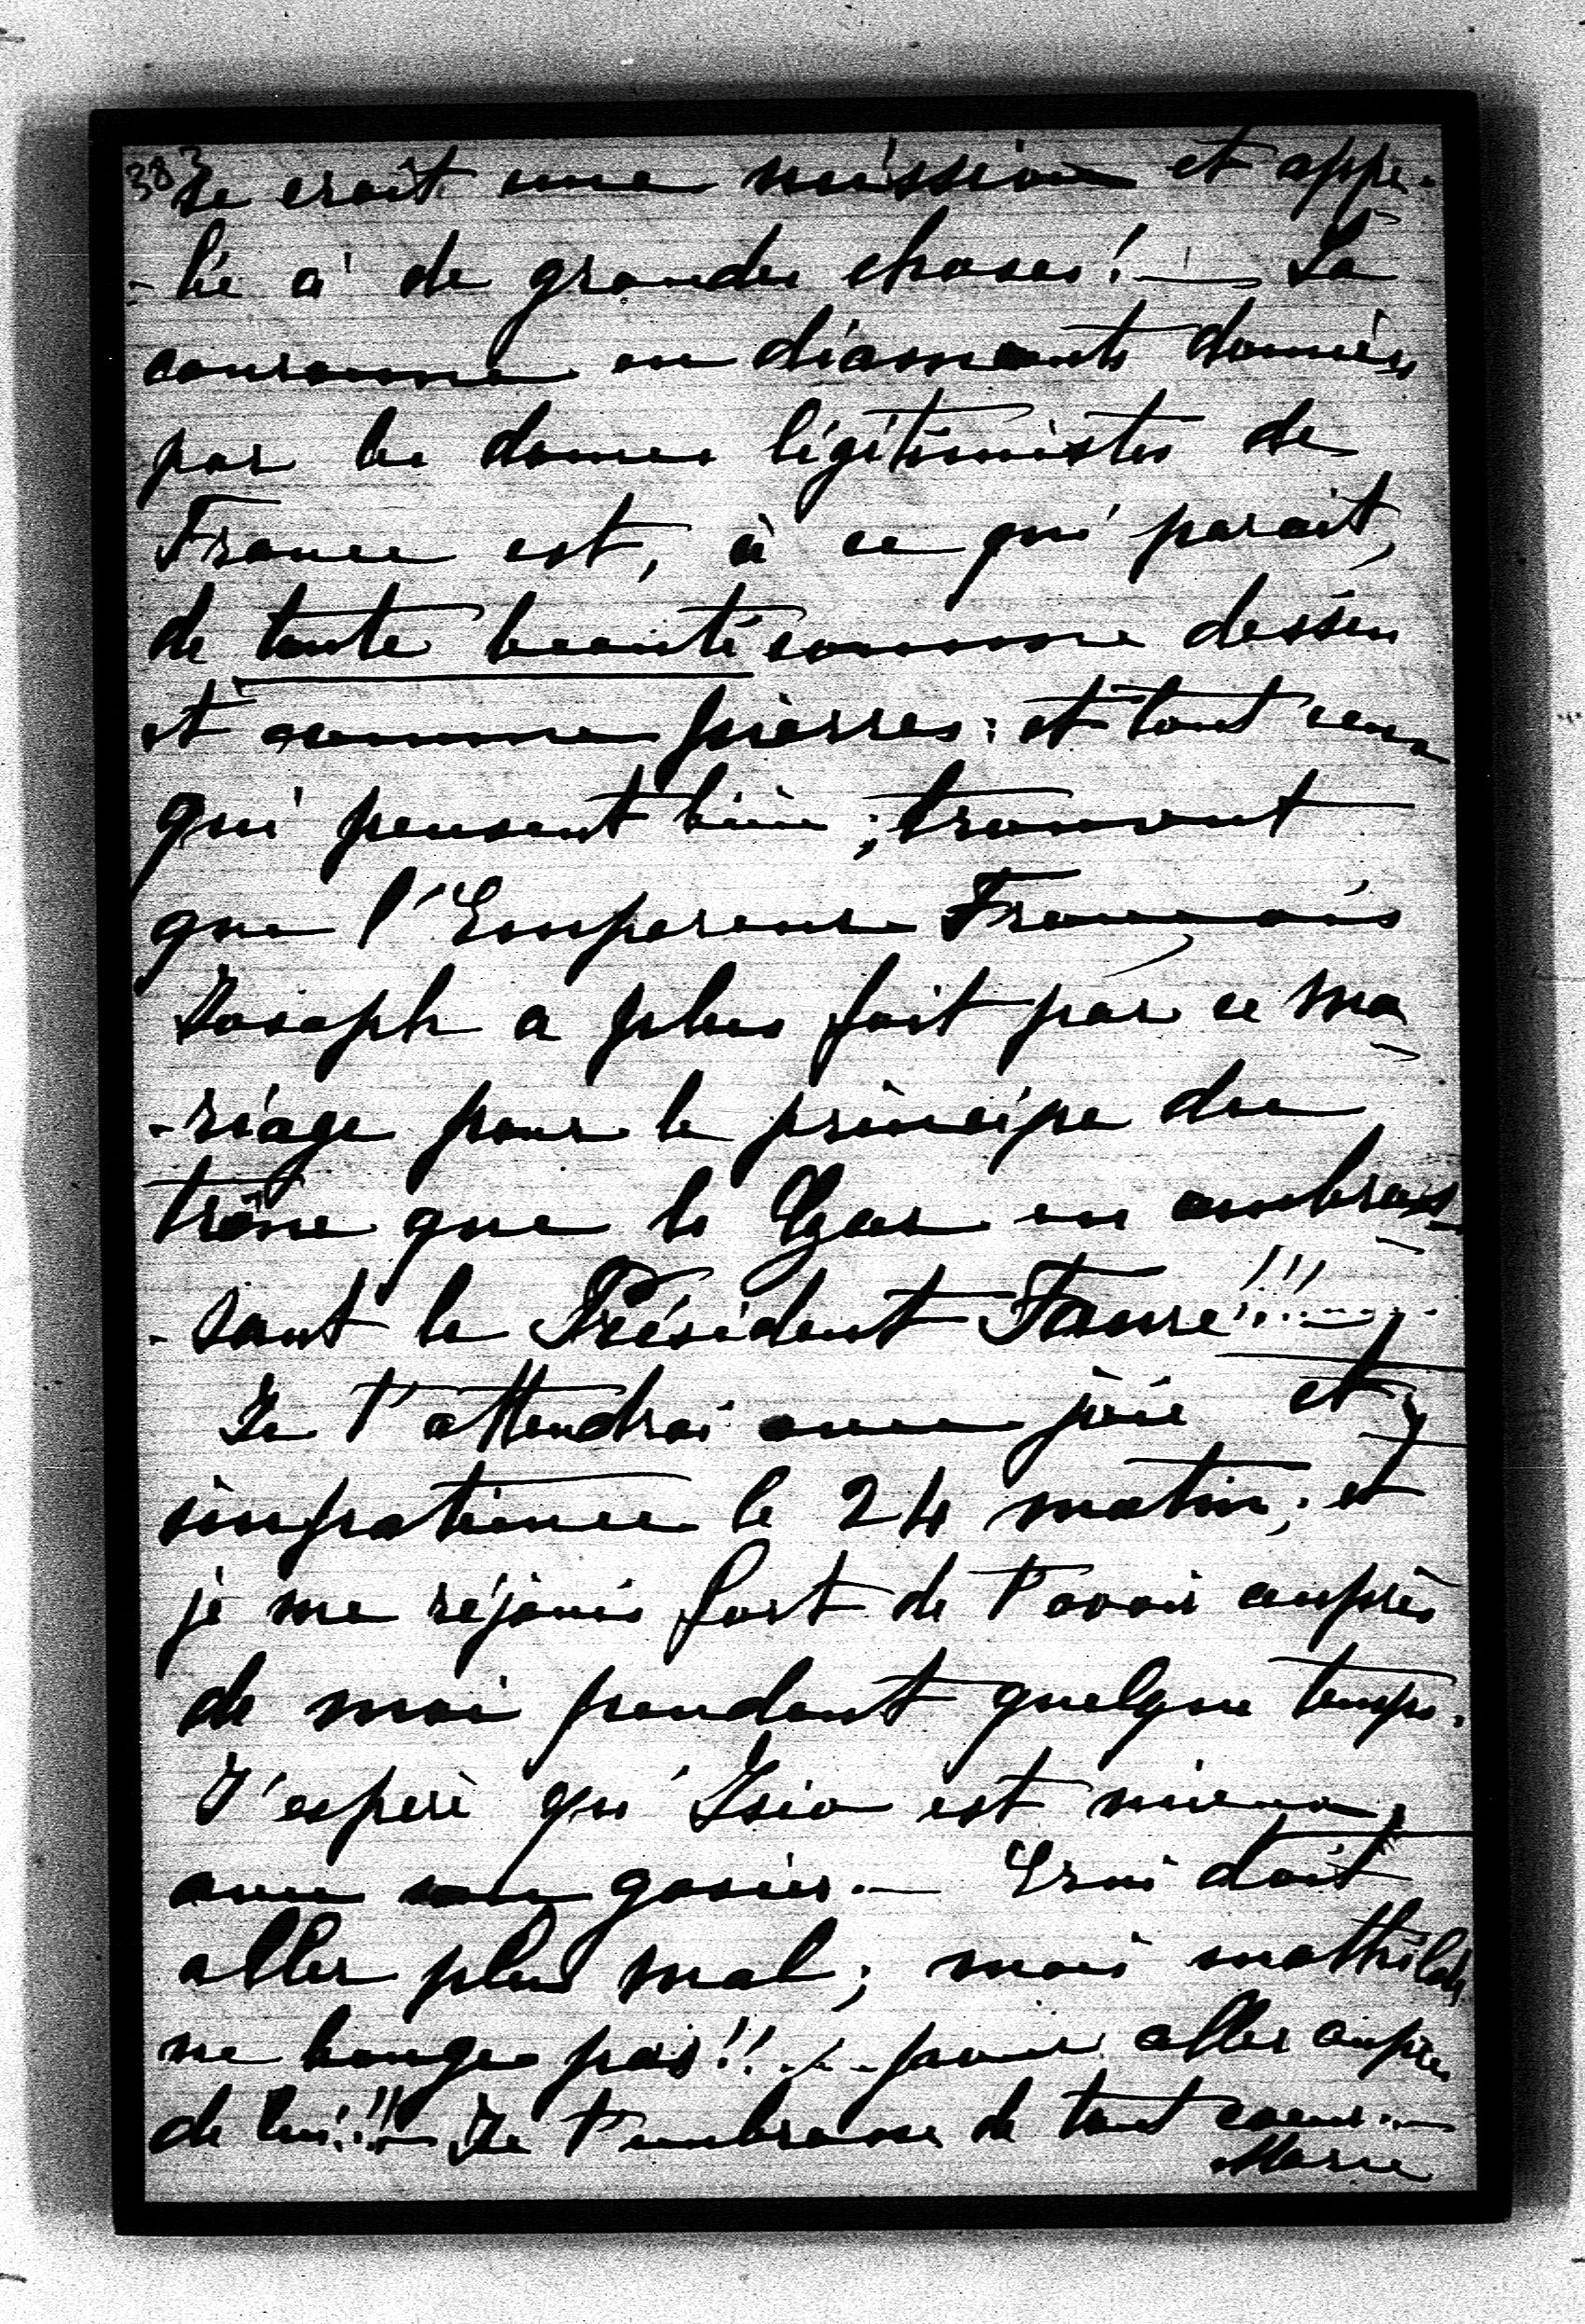 383
se croit une mission et appe-
-lée à de grandes choses! — La
couronne en diamants donnée
par les dames légitimistes de
France est, à ce qui parait,
de toute beauté comme dessin
et comme pierres: et tout ceux
qui pensent bien, trouvent
que l'Empereur François
Joseph a plus fait par ce ma-
-riage pour le principe du
trône que le Czar en embras-
-sant le Président Faure!!! —
Je t'attendrai avec joie et
impatience le 24 matin; et
je me réjouis fort de t'avoir auprès
de moi pendant quelque temps.
J'espère qu'Isio est mieux
avec son gosier. — Erni doit
aller plus mal; mais Mathilde
ne bouge pas!! . . . pour aller auprès
de lui!!! — Je t'embrasse de tout coeur. —
Marie